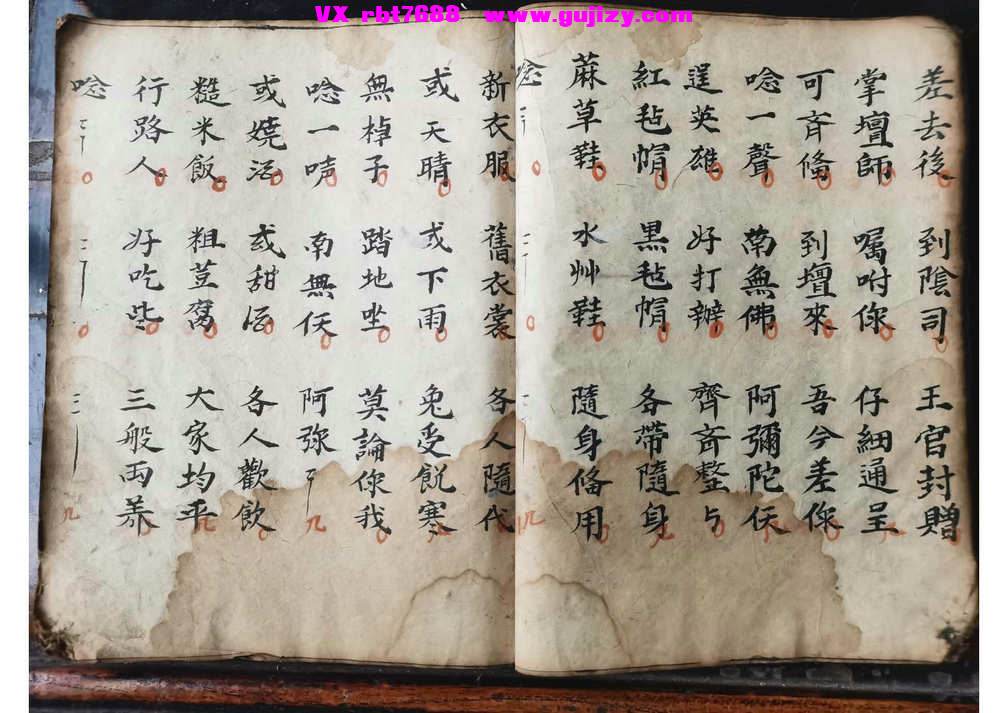 VX rbt7688 www.gujizy.com
差去後 到陰司 王官封贈
掌壇師 囑咐你 仔細通呈
可斉俻 到壇來 吾今差你
唸一聲 南無佛 阿彌陀仸
逞英雄 好打辦 齊斉整与
紅毡帽 黒毡帽 各帶隨身
蔴草鞋 水艸鞋 隨身俻用
唸
新衣服 舊衣裳 各人隨代
或天晴 或下雨 免受飢寒
無棹子 踏地坐 莫論你我
唸一声 南無仸 阿弥
或燒酒 或甜酒 各人歡飲
糙米飯 粗荳腐 大家均平
行路人 好吃些 三般兩養
唸